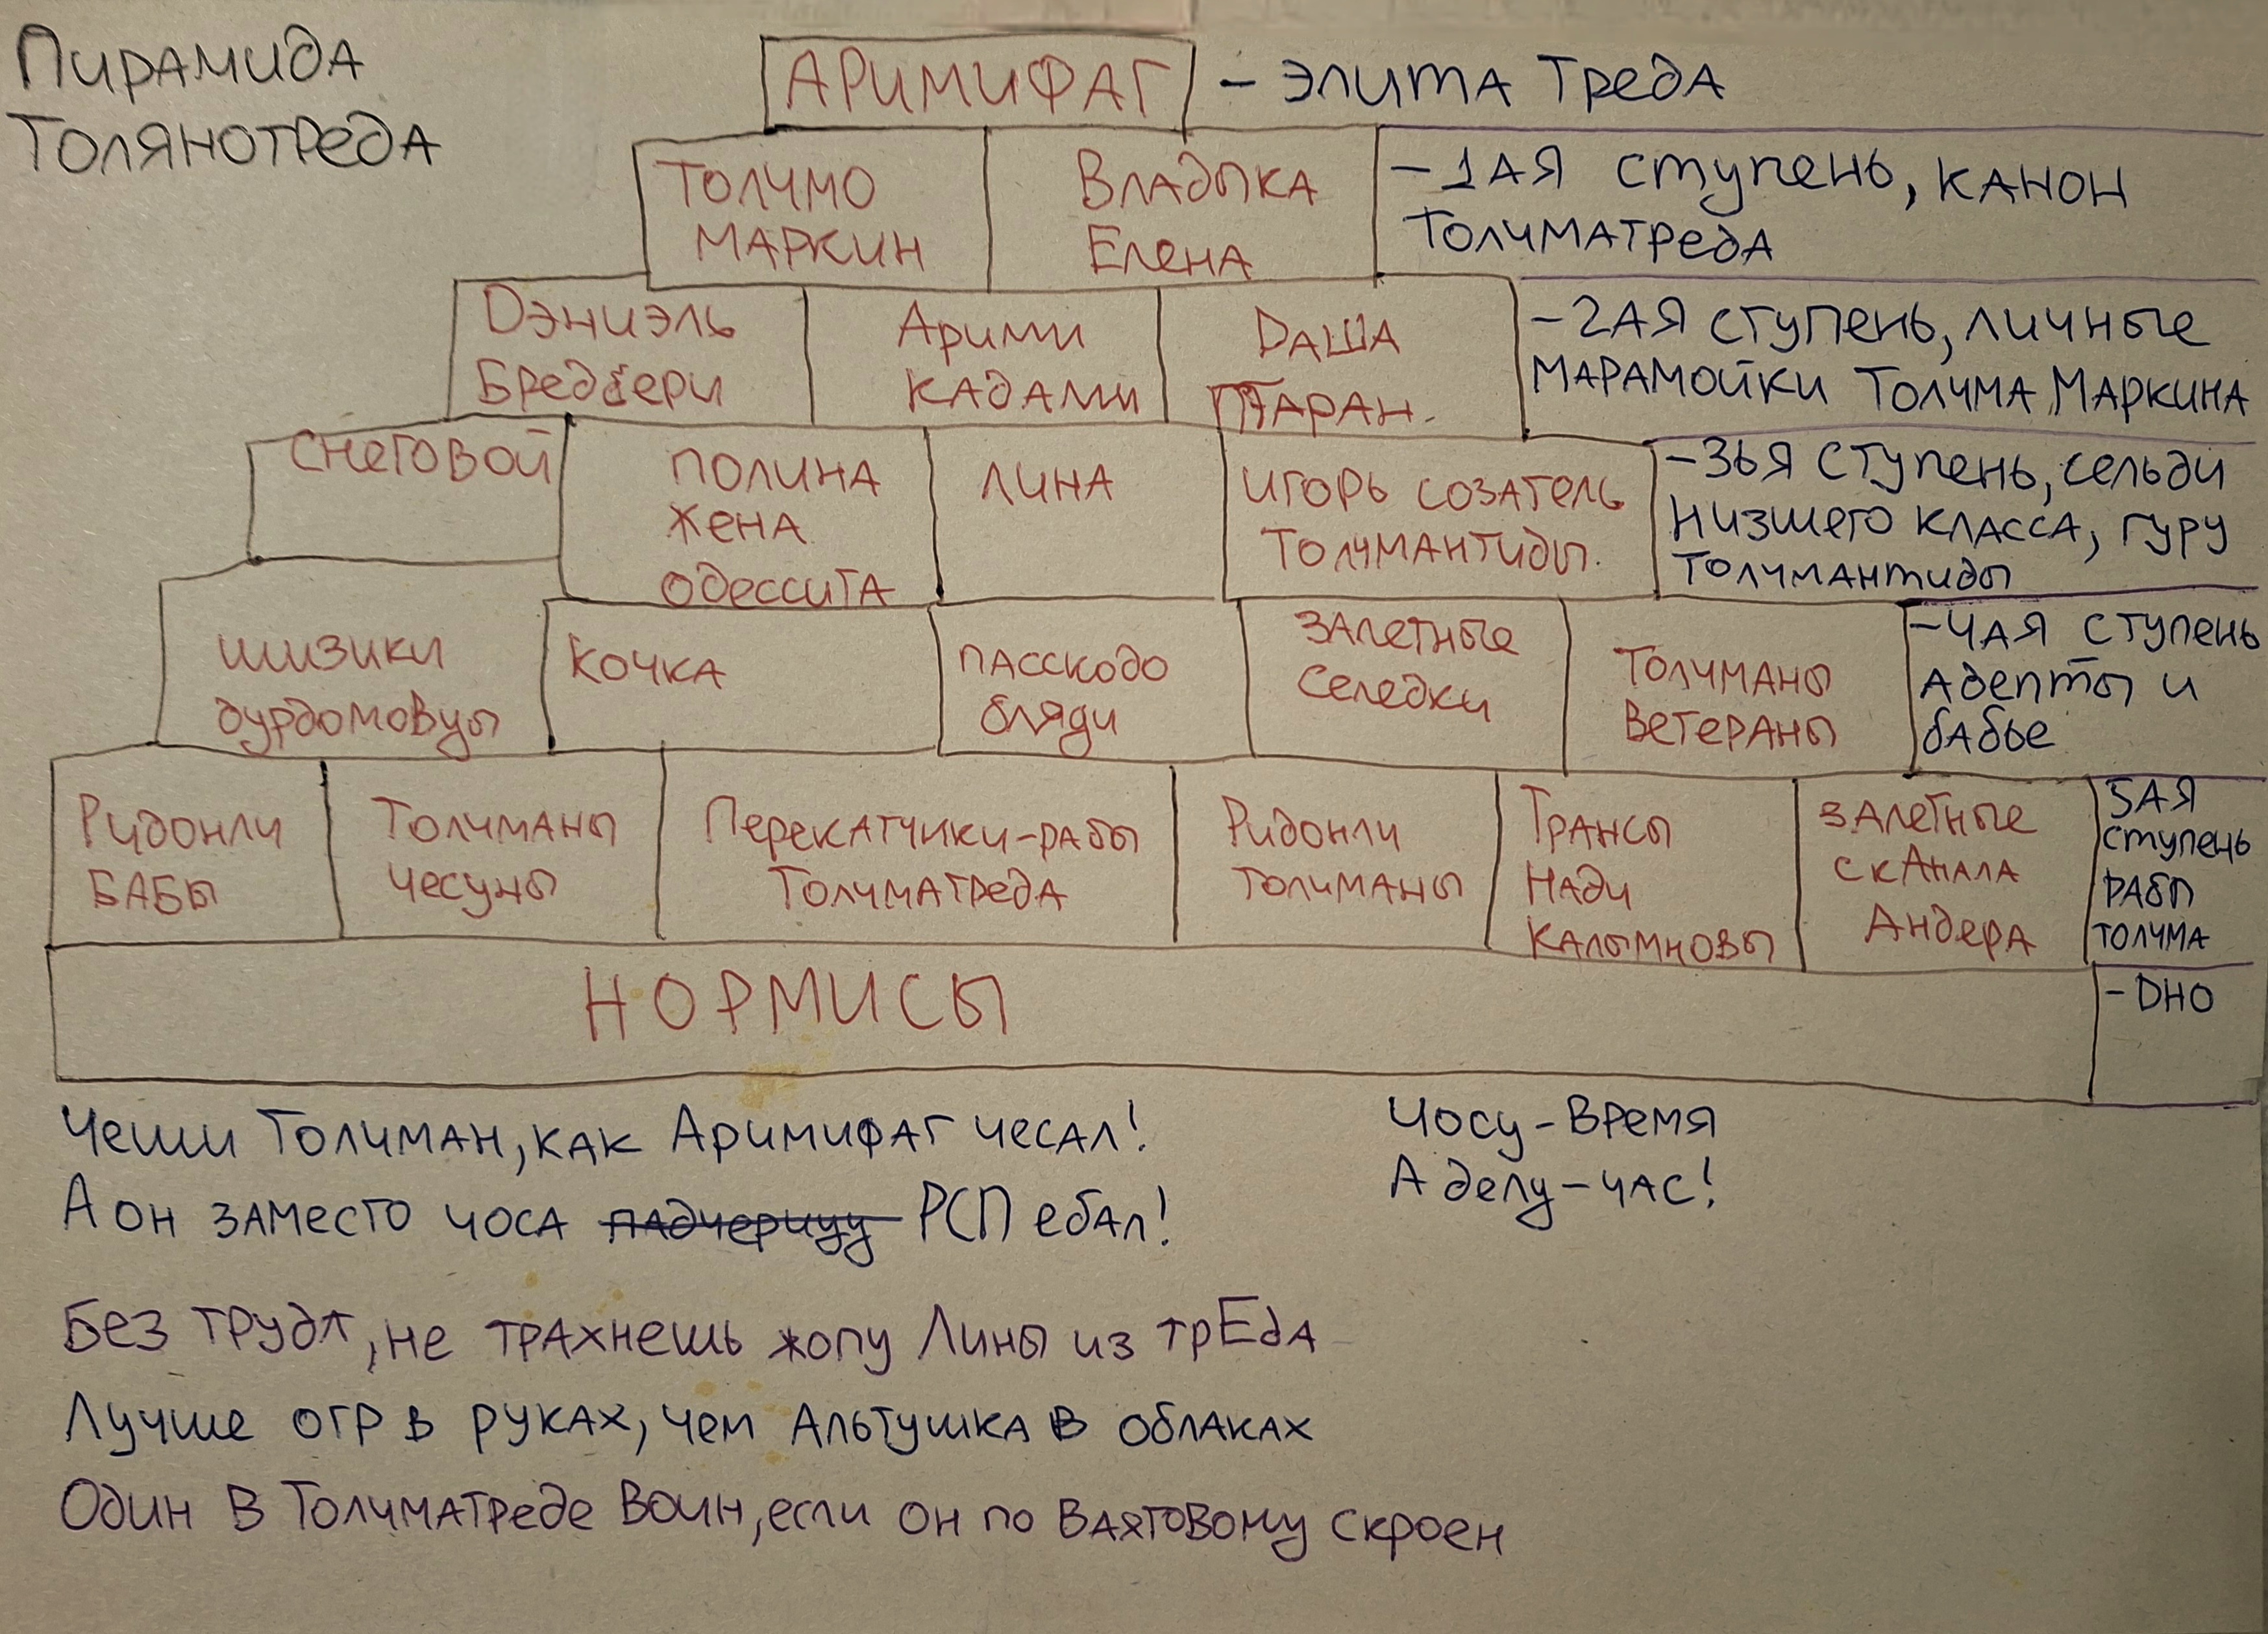 Пирамида
Толянотреда
АРИМИФАГ - элита треда
Толчмо
Маркин
Владыка
Елена
- 1ая ступень, канон
Толчматреда
Дэниэль
Бредбери
Арими
Кадами
Даша
Таран.
- 2ая ступень, личные
марамойки Толчма Маркина
Снеговой
Полина
жена
одессита
Лина
Игорь созатель
Толчмантиды.
- 3ья ступень, сельди
низшего класса, гуру
Толчмантиды
шизики
дурдомовцы
Кочка
пасскодо
бляди
залетные
селедки
Толчманы
ветераны
- 4ая ступень
адепты и
бабье
Ридонли
бабы
Толчманы
чесуны
Перекатчики-рабы
Толчматреда
Ридонли
толчманы
Трансы
Нади
Калымновы
залетные
с канала
Андера
5ая
ступень
рабы
толчма
НОРМИСЫ
- Дно
Чеши Толчман, как Аримифаг чесал!
А он заместо чоса падчерицу РСП ебал!
Чосу-время
А делу-час!
Без труда, не трахнешь жопу Лины из трЕда
Лучше огр в руках, чем Альтушка в облаках
Один в Толчматреде воин, если он по скроен